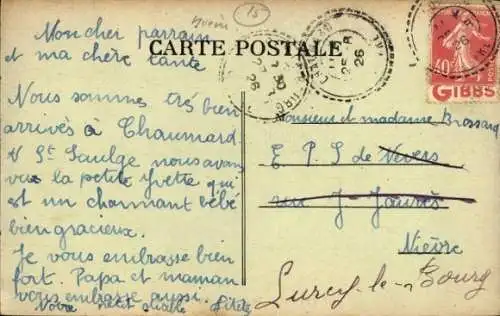 Mon cher parrain
et ma chère tante
15
CARTE POSTALE
26
40
GIBBS
Nous sommes très bien
arrivés à Chaumard
A St Saulge nous avons
vu la petite Yvette qui
est un charmant bébé
bien gracieux.
Je vous embrasse bien
fort. Papa et maman
vous embrasse aussi.
Votre petit
Monsieur et madame Brossard
E P S de Nevers
rue J-Jaurès
Nièvre
Lurcy-le-Bourg